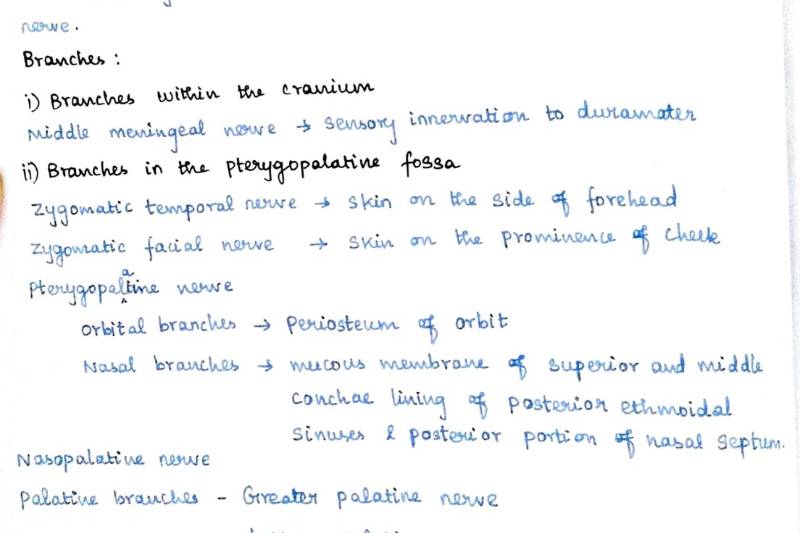 nerve.
Branches :
i) Branches within the cranium
Middle meningeal nerve → sensory innervation to duramater
ii) Branches in the pterygopalatine fossa
Zygomatic temporal nerve → skin on the side of forehead
Zygomatic facial nerve → skin on the prominence of cheek
Pterygopalatine nerve
Orbital branches → Periosteum of orbit
Nasal branches → mucous membrane of superior and middle
conchae lining of posterior ethmoidal
sinuses & posterior portion of nasal septum.
Nasopalatine nerve
Palatine branches - Greater palatine nerve